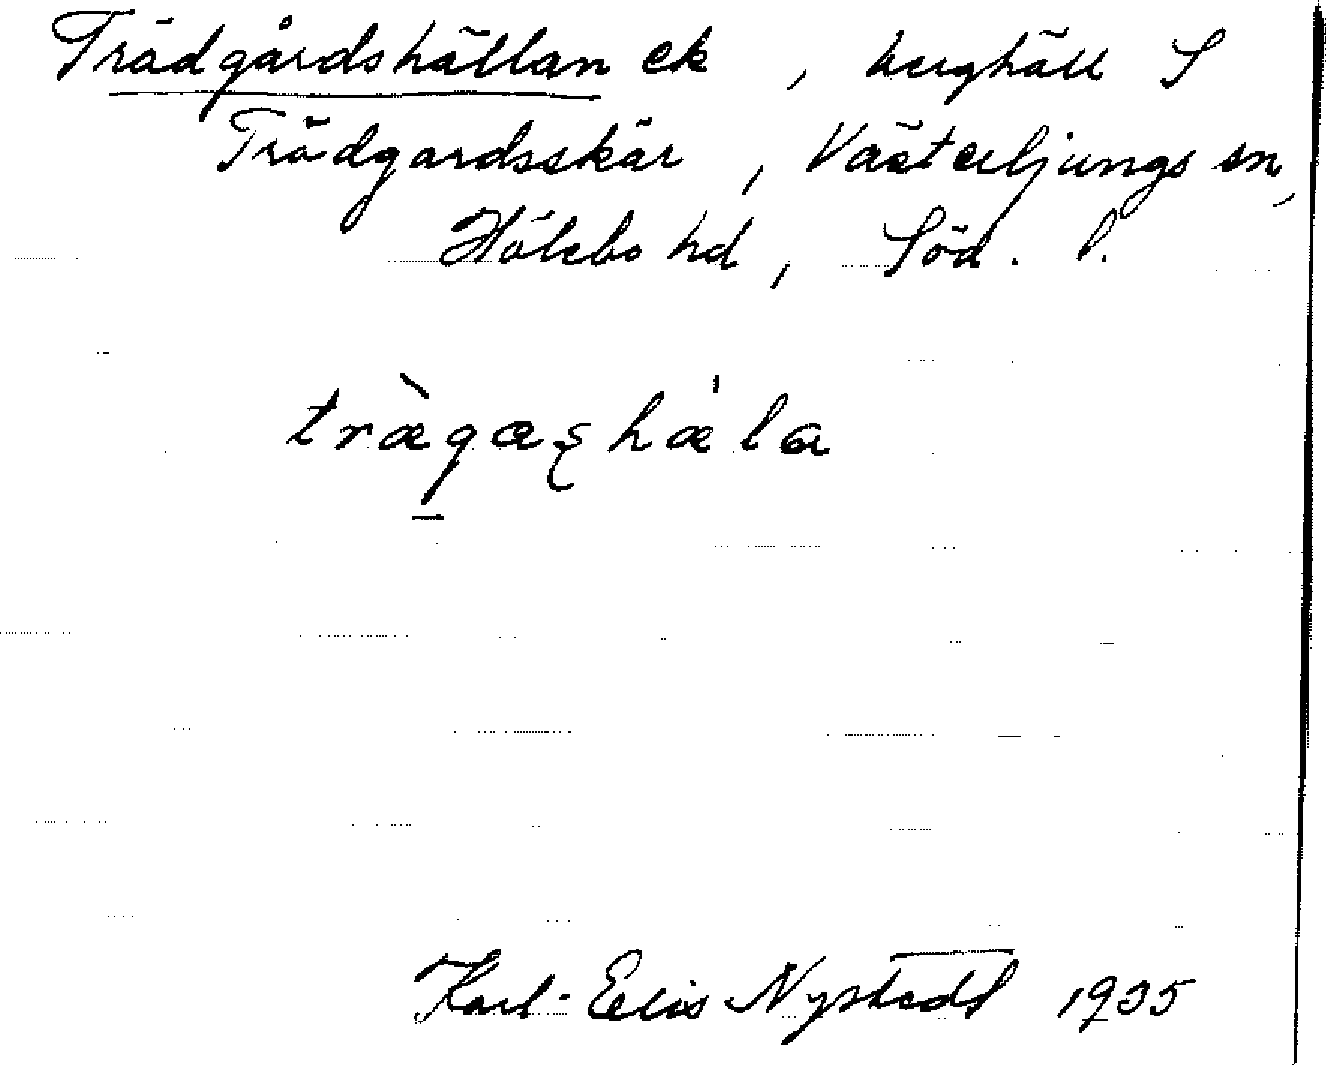 Trädgårdshällan ek, berghäll S
Trädgardsskär, Västerljungs sn,
Hölebo hd, Söd. l.
Karl-Elis Nystedt 1935